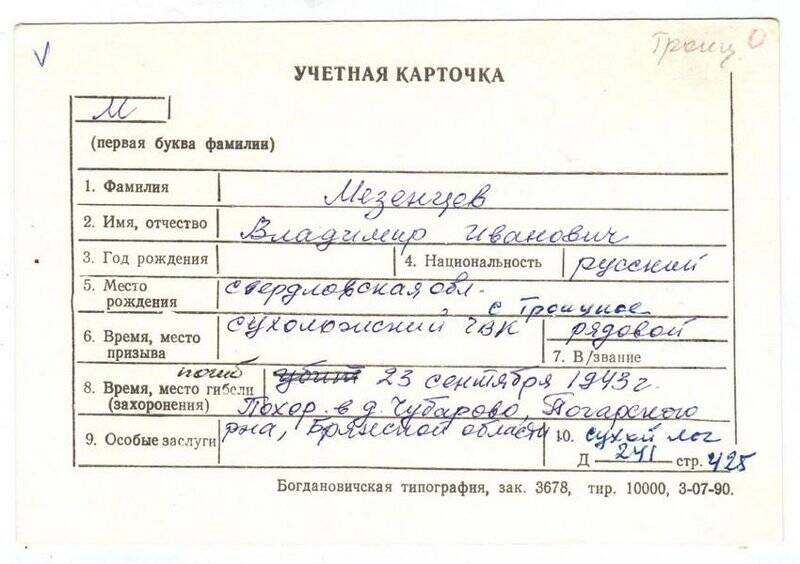 V
Троиц. О
УЧЕТНАЯ КАРТОЧКА
М
(первая буква фамилии)
1. Фамилия Мезенцев
2. Имя, отчество Владимир Иванович
3. Год рождения 4. Национальность русский
5. Место рождения свердловская обл.
с Троицкое
6. Время, место призыва сухоложский ГВК рядовой
7. В/звание
погиб
8. Время, место гибели убит 23 сентября 1943 г.
(захоронения) Похор. в д. Чубарово, Погарского
9. Особые заслуги рна, Брянской области 10. сухой лог
Д 241 стр. 425
Богдановичская типография, зак. 3678, тир. 10000, 3-07-90.